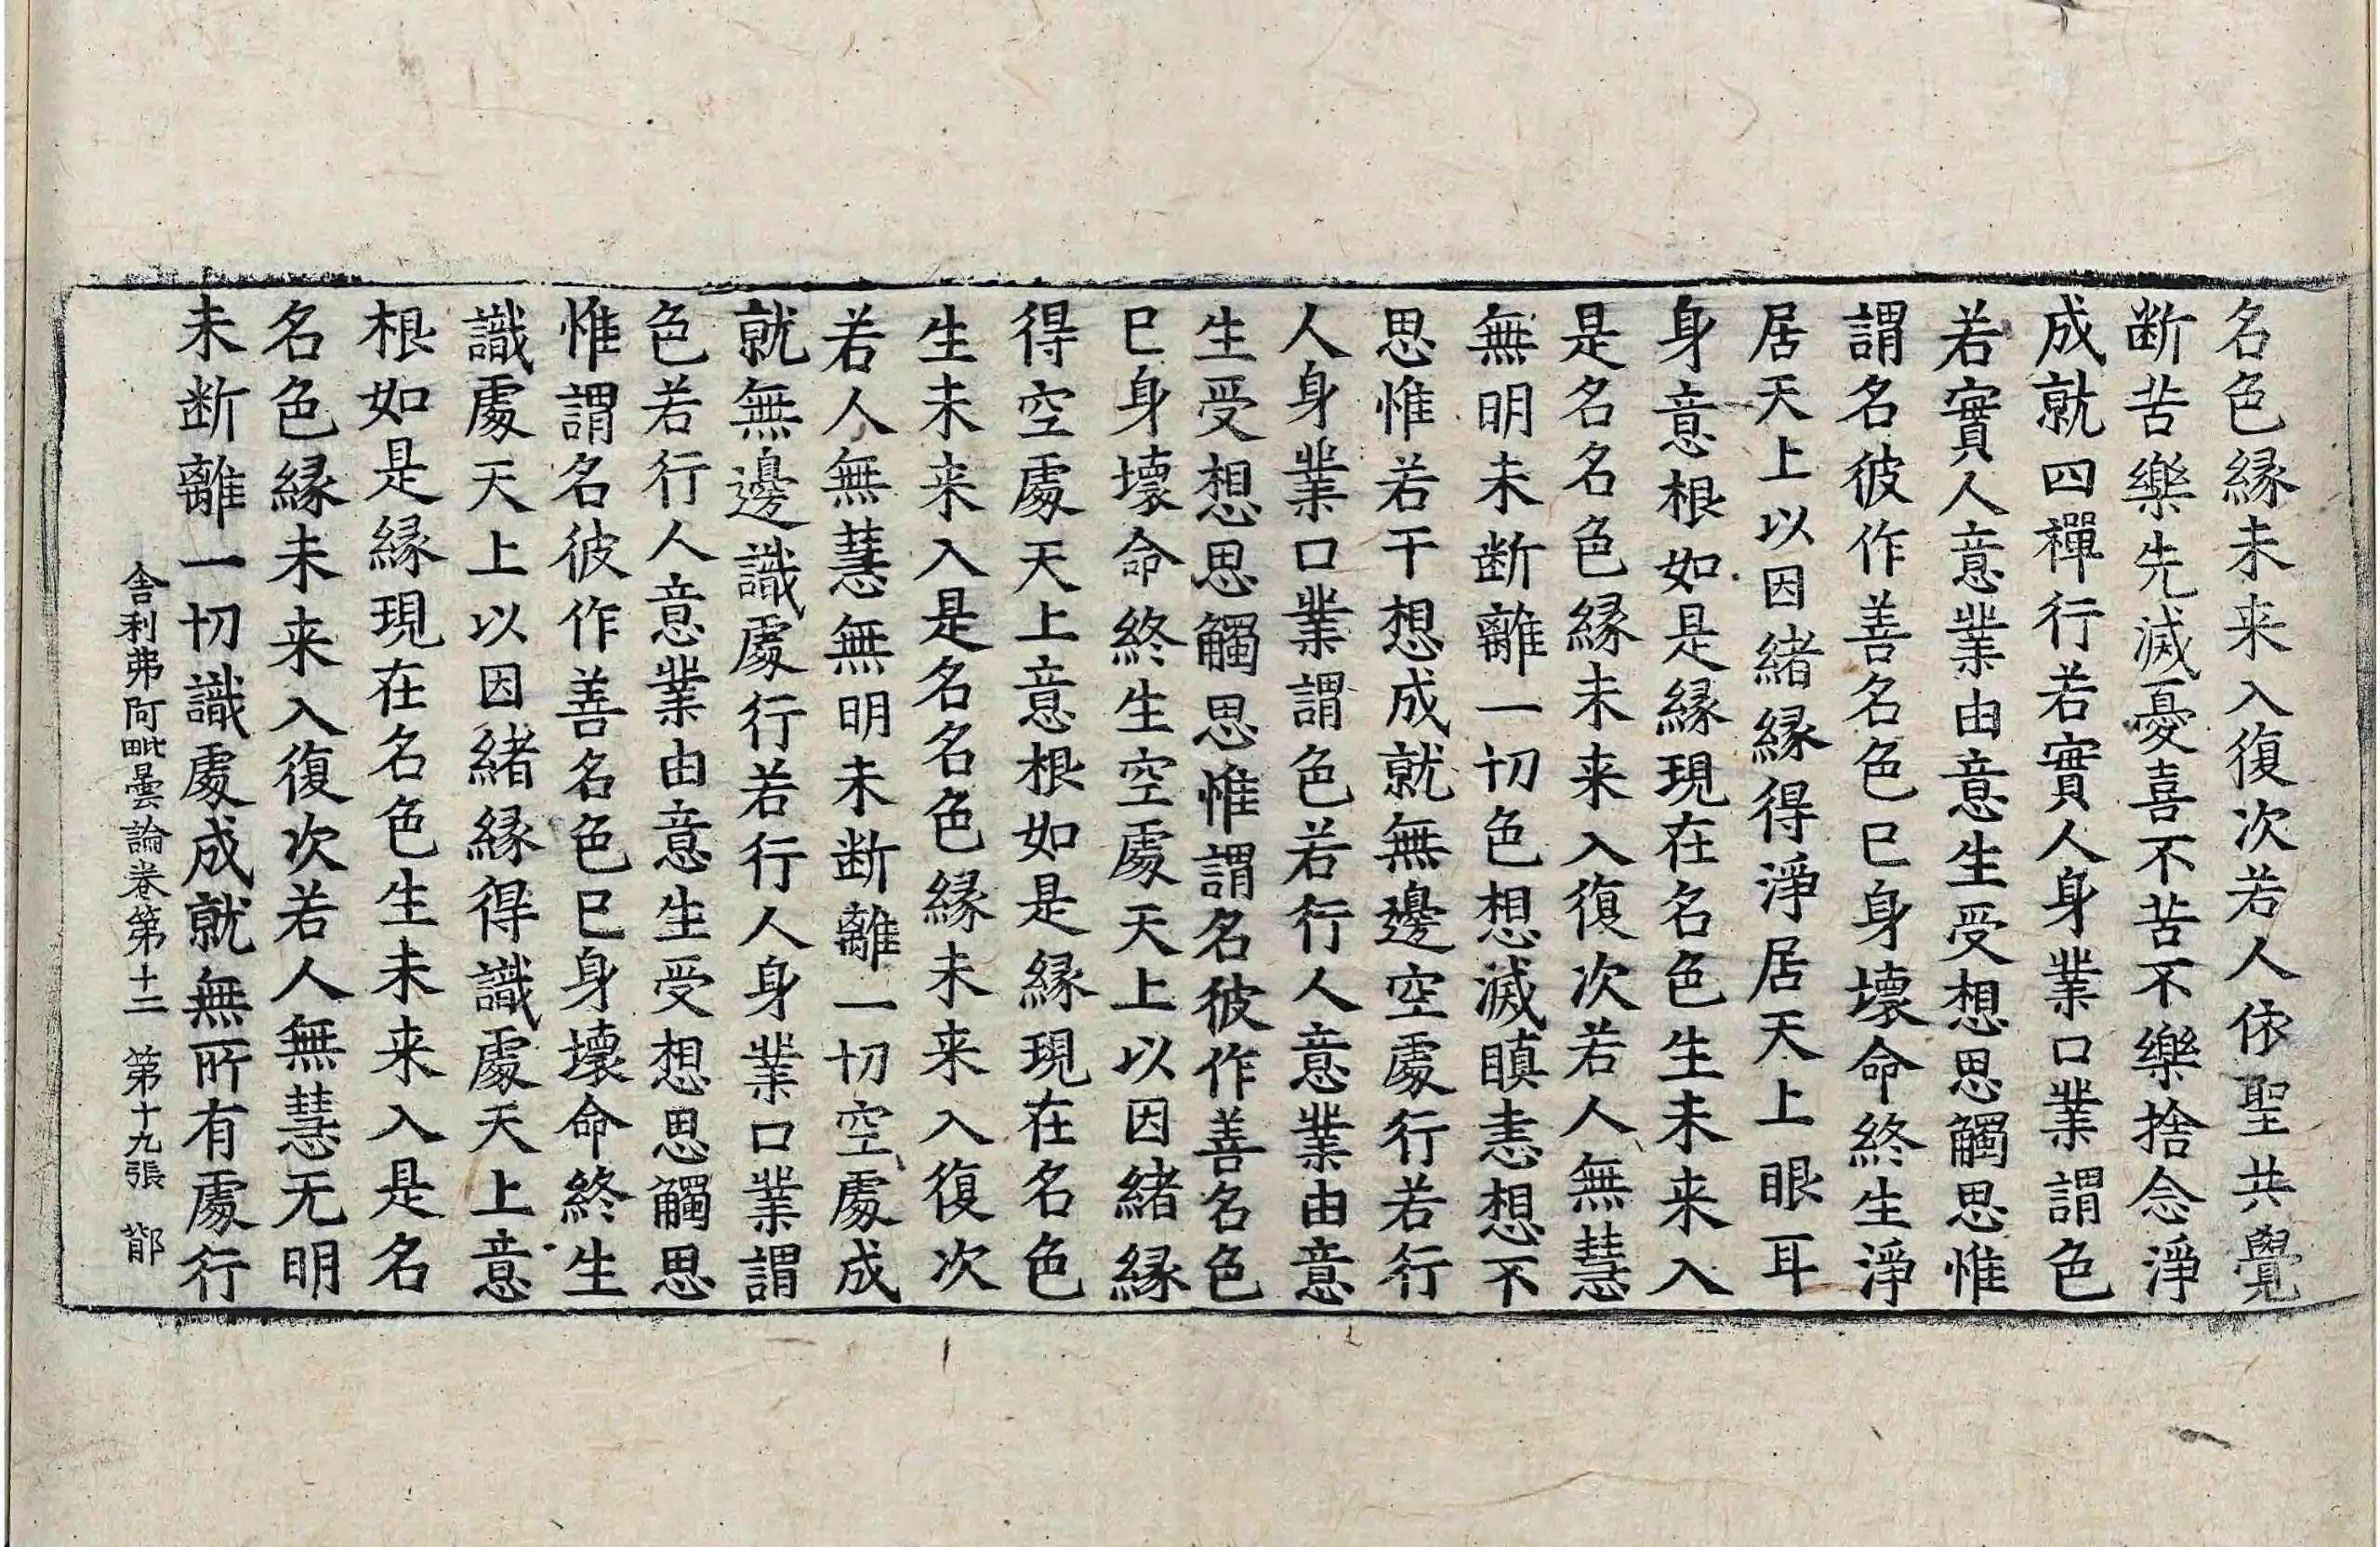 名色縁未来入復次若人依聖共覺
断苦樂先滅憂喜不苦不樂捨念淨
成就四禪行若實人身業口業謂色
若實人意業由意生受想思觸思惟
謂名彼作善名色巳身壞命終生淨
居天上以因緒縁得淨居天上眼耳
身意根如是縁現在名色生未来入
是名名色縁未来入復次若人無慧
無明未断離一切色想滅瞋恚想不
思惟若干想成就無邊空處行若行
人身業口業謂色若行人意業由意
生受想思觸思惟謂名彼作善名色
巳身壞命終生空處天上以因緒縁
得空處天上意根如是縁現在名色
生未来入是名名色縁未来入復次
若人無慧無明未断離一切空處成
就無邊識處行若行人身業口業謂
色若行人意業由意生受想思觸思
惟謂名彼作善名色巳身壞命終生
識處天上以因緒縁得識處天上意
根如是縁現在名色生未来入是名
名色縁未来入復次若人無慧无明
未断離一切識處成就無所有處行
舎利弗阿毗曇論卷第十二　第十九張